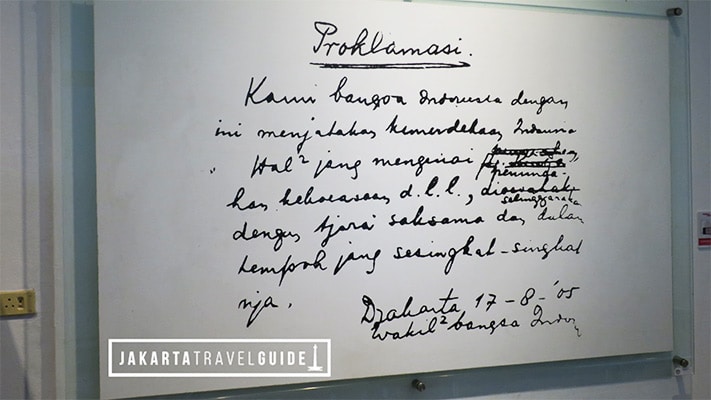 Proklamasi.
Kami bangsa Indonesia dengan
ini menjatakan kemerdekaan Indonesia
Hal² jang mengenai
peminda-
han kekoeasaan d.l.l.,
diselenggarakan
dengan tjara saksama dan dalam
tempoh jang sesingkat-singkat
nja.
Djakarta 17-8-'05
Wakil² bangsa Indon
JAKARTATRAVELGUIDE